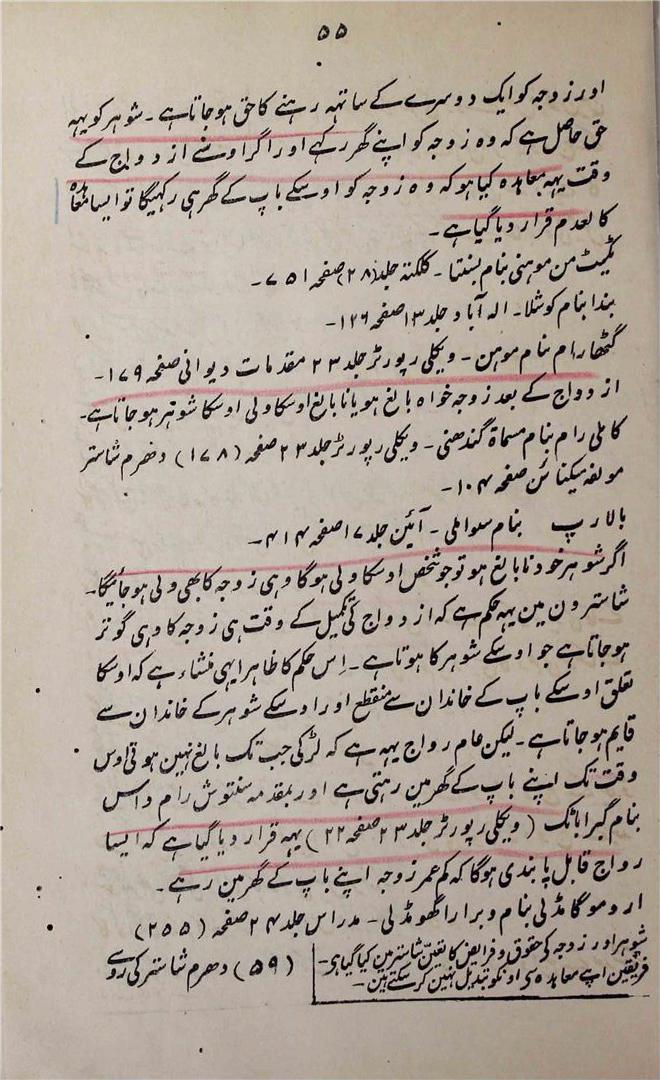 ۵۵
اور زوجہ کو ایک دوسرے کے ساتہہ رہنے کا حق ہو جاتا ہے۔ شوہر کو یہہ
حق حاصل ہے کہ وہ زوجہ کو اپنے گھر رکہے اور اگر اوسنے ازدواج کے
وقت یہہ معاہدہ کیا ہو کہ وہ زوجہ کو اوسکے باپ کے گھر ہی رکہیگا تو ایسا معاہدہ
کالعدم قرار دیا گیا ہے۔
ٹکیٹ من موہنی بنام بسنتا۔ کلکتہ جلد (۲۸) صفحہ ۷۵۱۔
بندا بنام کوشلا۔ الہ آباد جلد ۱۳ صفحہ ۱۲۶۔
گٹھا رام بنام موہن۔ ویکلی رپورٹر جلد ۲۳ مقدمات دیوانی صفحہ ۱۷۹۔
ازدواج کے بعد زوجہ خواہ بالغ ہو یا نابالغ اوسکا ولی اوسکا شوہر ہو جاتا ہے۔
کاملی رام بنام مسماۃ گندھنی۔ ویکلی رپورٹر جلد ۲۳ صفحہ (۱۷۸) دھرم شاستر
مولفہ میکناٹن صفحہ ۱۰۴۔
بالا رپ بنام سواملی۔ آئین جلد ۱۷ صفحہ ۴۱۴۔
اگر شوہر خود نابالغ ہو تو جو شخص اوسکا ولی ہوگا وہی زوجہ کا بھی ولی ہو جائیگا۔
شاسترون مین یہہ حکم ہے کہ ازدواج کی تکمیل کے وقت ہی زوجہ کا وہی گوتر
ہو جاتا ہے جو اوسکے شوہر کا ہوتا ہے۔ اِس حکم کا ظاہرا یہی منشاء ہے کہ اوسکا
تعلق اوسکے باپ کے خاندان سے منقطع اور اوسکے شوہر کے خاندان سے
قایم ہو جاتا ہے۔ لیکن عام رواج یہہ ہے کہ لڑکی جب تک بالغ نہین ہوتی اوس
وقت تک اپنے باپ کے گھر مین رہتی ہے اور بمقدمہ سنتوش رام داس
بنام گیرا باٹک (ویکلی رپورٹر جلد ۲۳ صفحہ ۲۲) یہہ قرار دیا گیا ہے کہ ایسا
رواج قابل پابندی ہوگا کہ کم عمر زوجہ اپنے باپ کے گھر مین رہے۔
اروموگا مڈلی بنام ویرا راگھوڈلی۔ مدراس جلد ۲۴ صفحہ (۲۵۵)
شوہر اور زوجہ کی حقوق و فرایض کا تعین شاستر مین کیا گیا ہی۔
فریقین اپے معاہدہ سی اونکو تبدیل نہین کر سکتے ہین۔
(۵۹) دھرم شاستر کی روسے